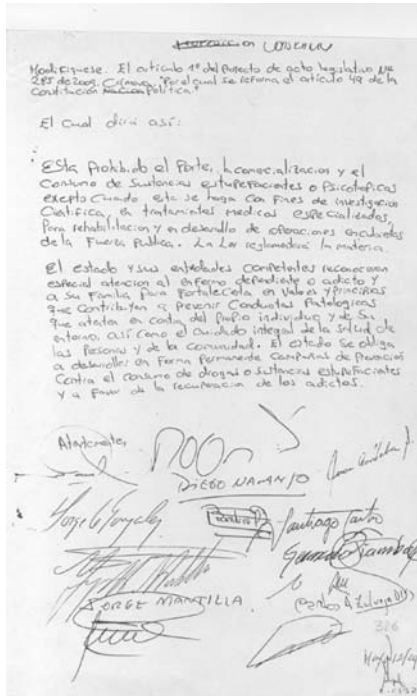 Modifiquese. El artículo 1º del Proyecto de acto legislativo Nº
285 de 2009. Cámara "Por el cual se reforma el artículo 49 de la
Constitución Política."
El Cual dirá así:
Esta Prohibido el Porte, la comercialización y el
Consumo de Sustancias estupefacientes o Psicotropicas
exepto Cuando esta se haga con Fines de investigación
Cientifica, en tratamientos medicos especializados,
Para rehabilitacion y en desarrollo de operaciones encubiertas
de la Fuerza Publica. La Ley reglamentará la materia.
El estado y sus entidades Competentes reconoceran
especial atencion al enfermo dependiente o adicto y
a su Familia Para Fortalecerla en Valores y Principios
que Contribuyan a prevenir Conductas Patologicas
que atenten en contra del Propio individuo y de Su
entorno, así como el Cuidado integral de la Salud de
las Personas y de la comunidad. El estado Se obliga
a desarrollar en Forma Permanente Campañas de Prevención
Contra el consumo de drogas o sustancias estupefacientes
y a favor de la recuperacion de los adictos.
Atentamente,
DIEGO NARANJO
Jorge González
Santiago Castro
JORGE MANTILLA
Carlos A Zuluaga
326